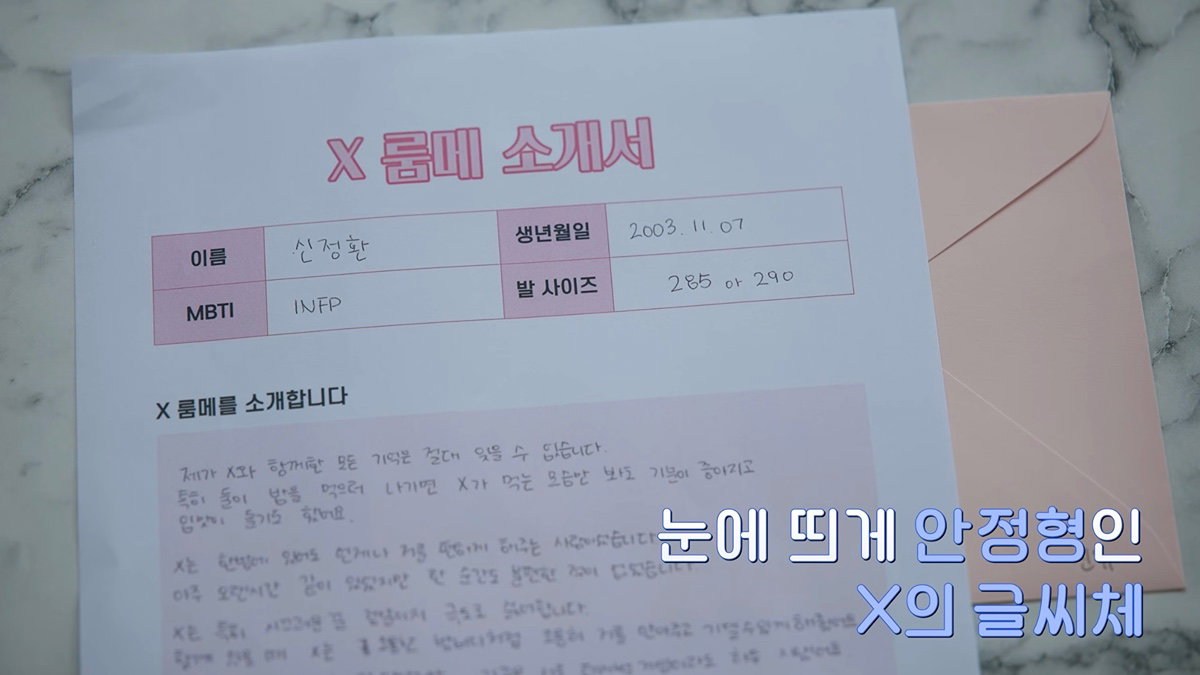 X 룸메 소개서
이름 신정환 생년월일 2003. 11. 07
MBTI INFP 발 사이즈 285 or 290
X 룸메를 소개합니다
제가 X와 함께한 모든 기억은 절대 잊을 수 없습니다.
특히 둘이 밥을 먹으러 나가면 X가 먹는 모습만 봐도 기분이 좋아지고
입맛이 돌기도 했어요.
X는 한번에 있어도 언제나 저를 편하게 해주는 사람이었습니다
아주 오랜시간 같이 있었지만 한 순간도 불편한 적이 없었습니다.
X는 특히 시끄러운
함께 있을 때 X는
눈에 띄게 안정형인
X의 글씨체